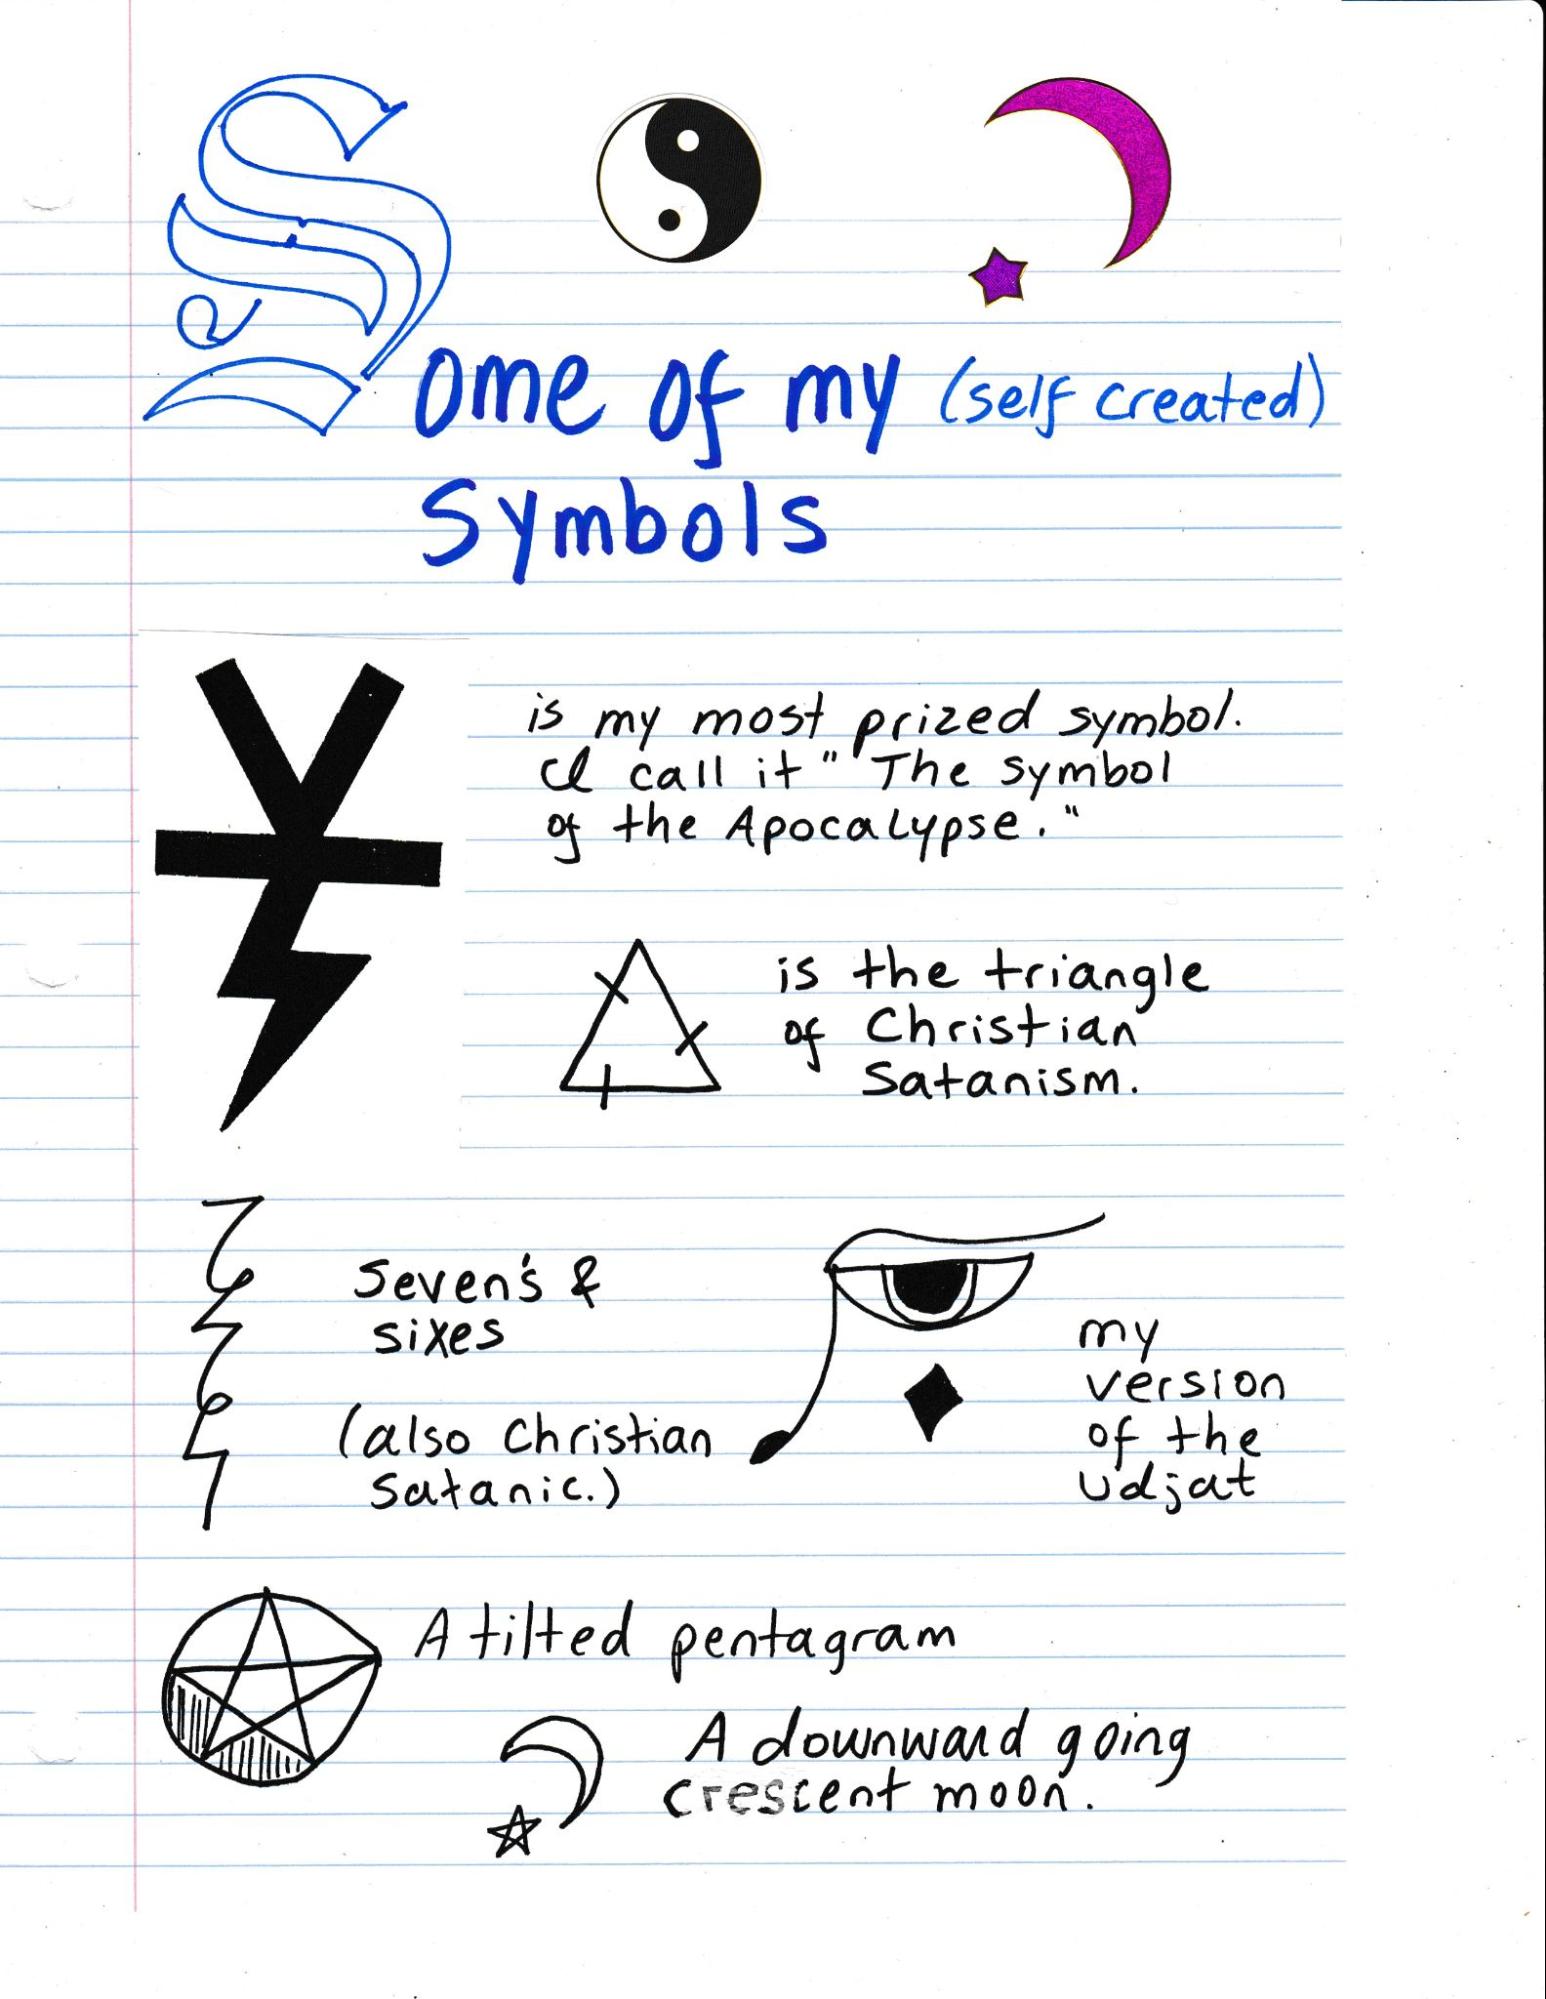 Some of my (self created)
Symbols
is my most prized symbol.
I call it "The symbol
of the Apocalypse."
is the triangle
of Christian
Satanism.
Seven's &
sixes
(also Christian
Satanic.)
my
version
of the
Udjat
A tilted pentagram
A downward going
crescent moon.